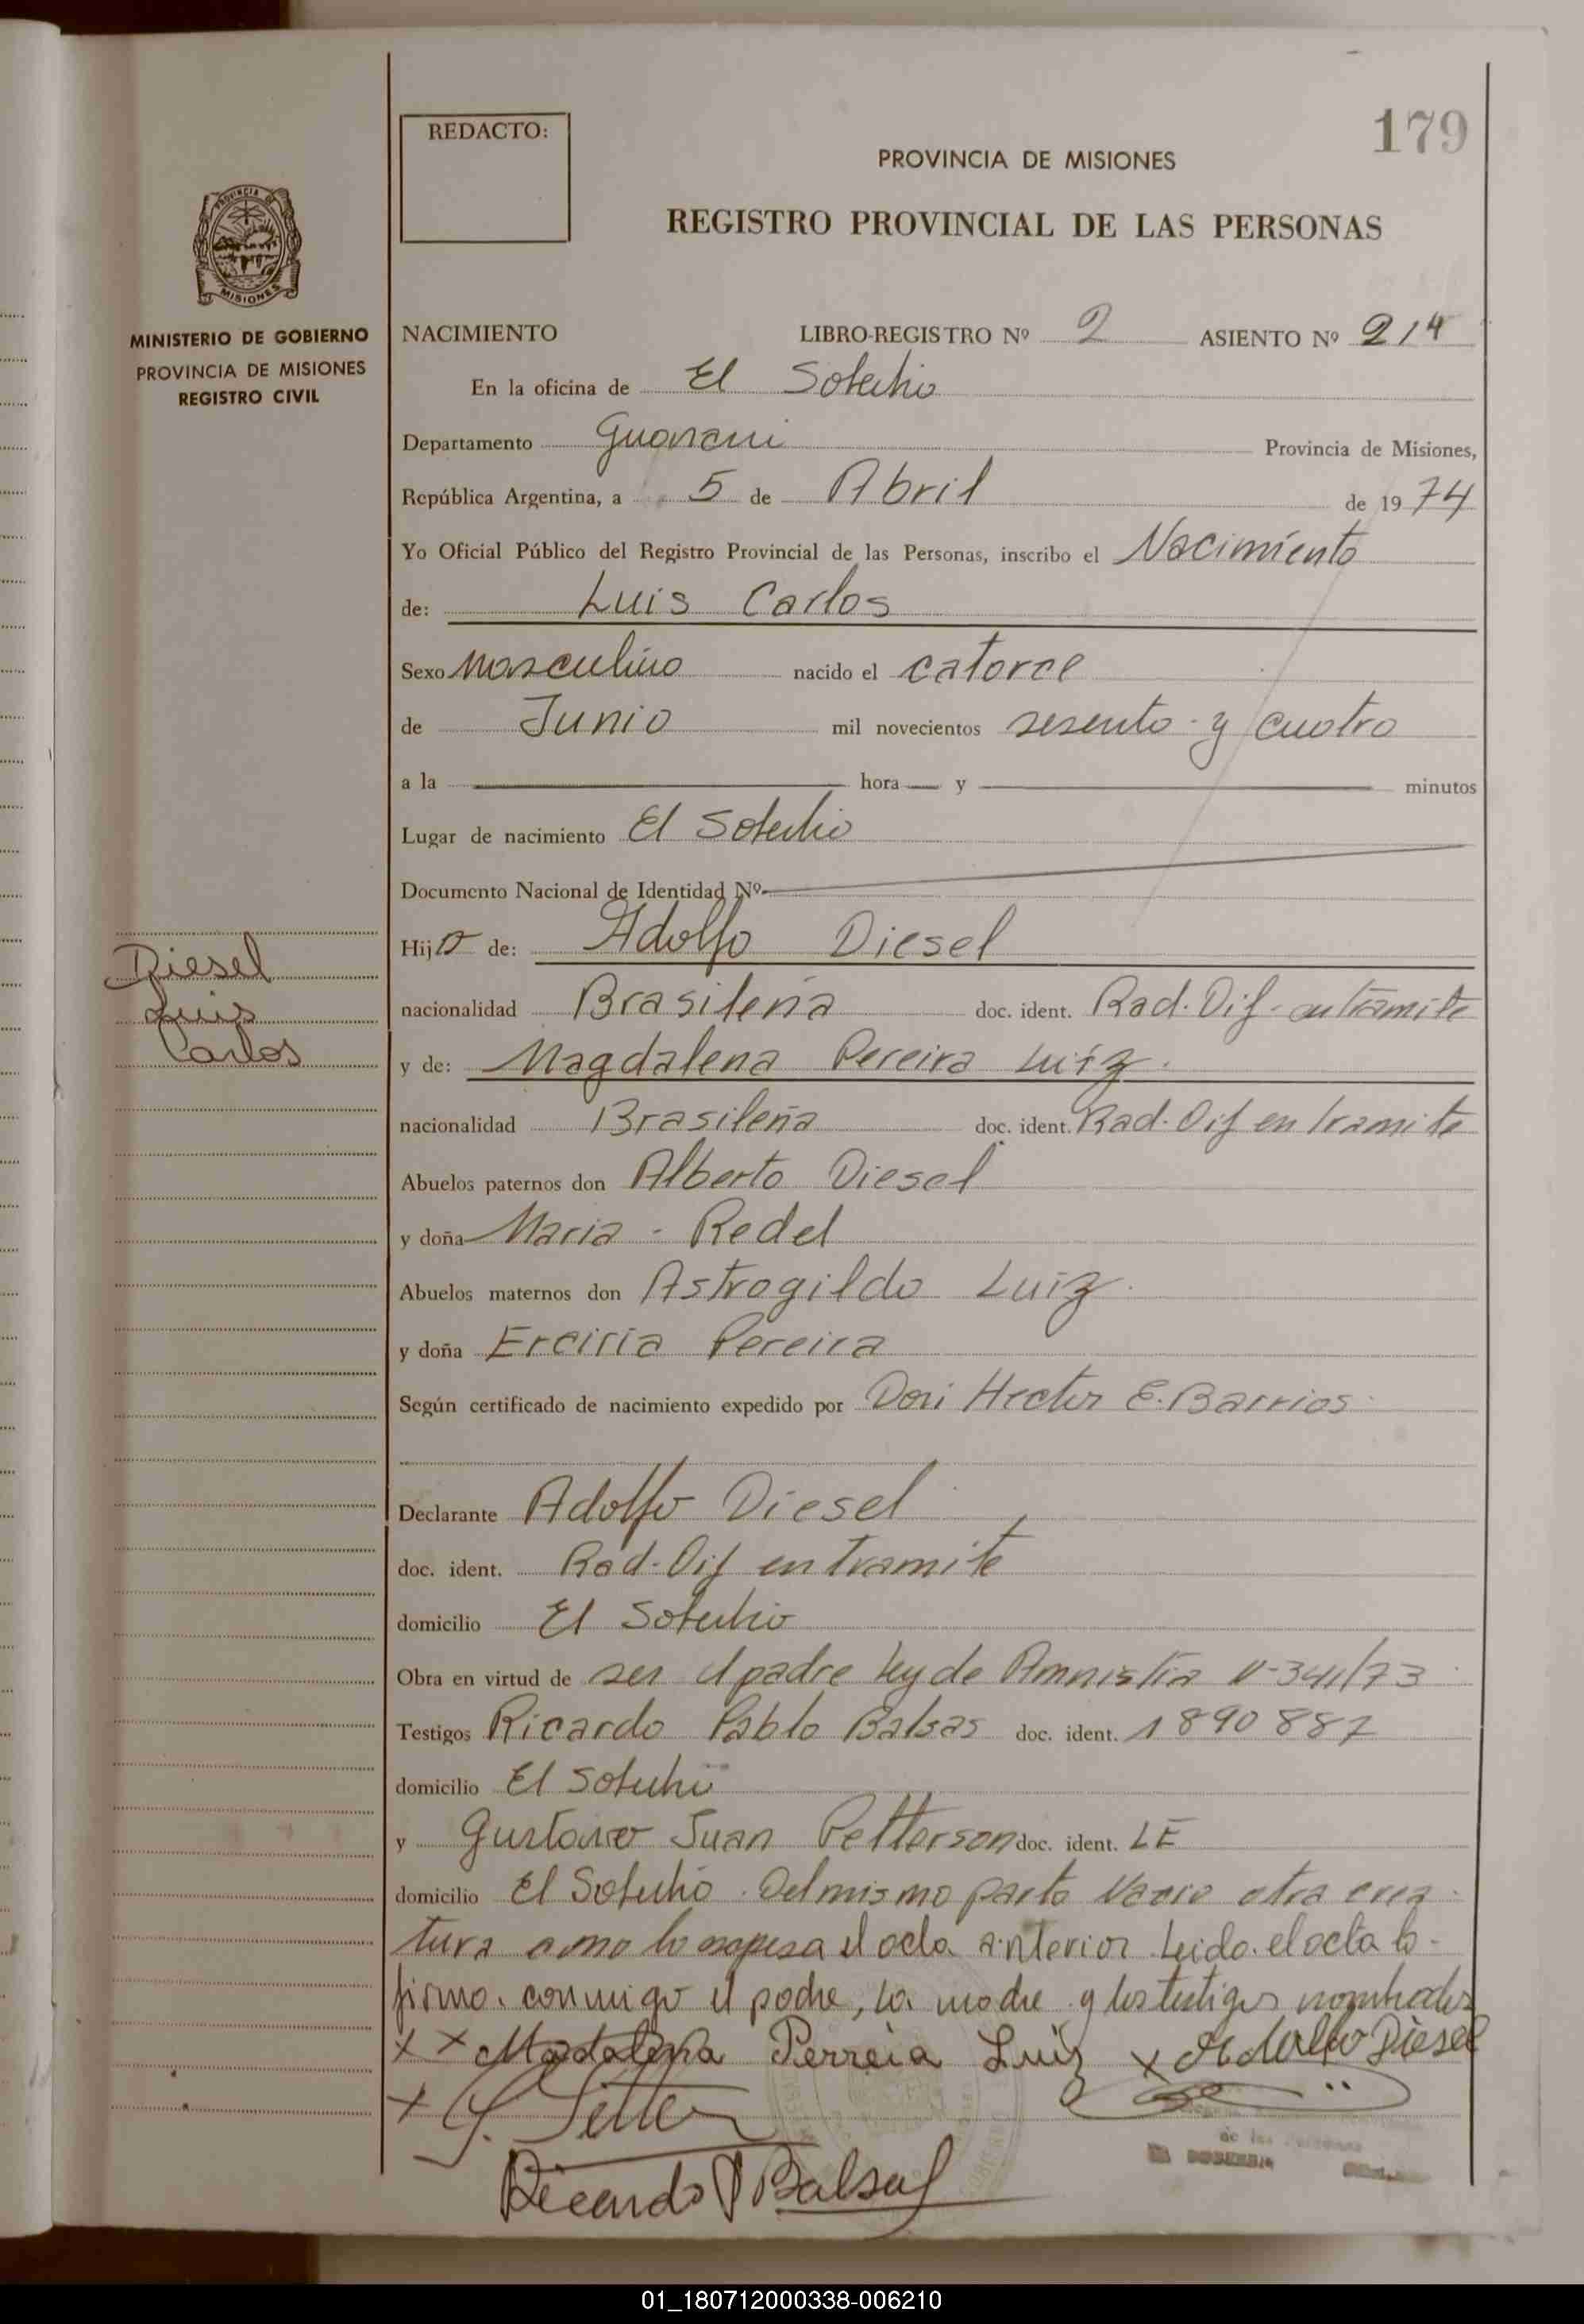 179
REDACTO:
PROVINCIA DE MISIONES
REGISTRO PROVINCIAL DE LAS PERSONAS
PROVINCIA DE
MISIONES
MINISTERIO DE GOBIERNO
PROVINCIA DE MISIONES
REGISTRO CIVIL
NACIMIENTO LIBRO-REGISTRO Nº 2 ASIENTO Nº 214
En la oficina de El Soberbio
Departamento Guarani Provincia de Misiones,
República Argentina, a 5 de Abril de 1974
Yo Oficial Público del Registro Provincial de las Personas, inscribo el Nacimiento
de: Luis Carlos
Sexo Masculino nacido el catorce
de Junio mil novecientos sesenta y cuatro
a la hora y minutos
Lugar de nacimiento El Soberbio
Documento Nacional de Identidad Nº
Hijo de: Adolfo Diesel
Diesel
Luis
Carlos
nacionalidad Brasileña doc. ident. Rad. Dif. en tramite
y de: Magdalena Pereira Luiz.
nacionalidad Brasileña doc. ident. Rad. Dif en tramite
Abuelos paternos don Alberto Diesel
y doña Maria - Redel
Abuelos maternos don Astrogildo Luiz.
y doña Erciria Pereira
Según certificado de nacimiento expedido por Don Hector E. Barrios.
Declarante Adolfo Diesel
doc. ident. Rad. Dif en tramite
domicilio El Soberbio
Obra en virtud de ser el padre ley de Amnistia 341/73
Testigos Ricardo Pablo Balsas doc. ident. 1890887
domicilio El Soberbio
y Gustavo Juan Petterson doc. ident. LE
domicilio El Soberbio. Del mismo parto nacio otra cria-
tura como lo expresa el acta anterior. Leido el acta lo
firma conmigo el padre, la madre y los testigos nombrados
x x Madalena Perreia Luiz x Adolfo Diesel
x
Ricardo P Balsas
de las Personas
01_180712000338-006210